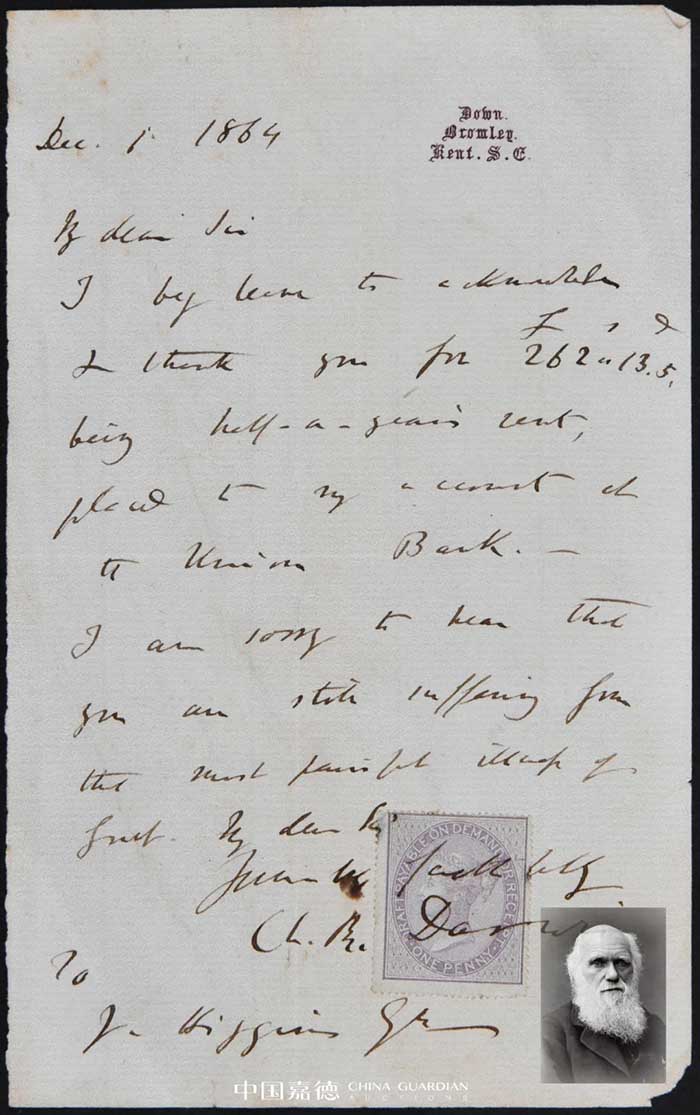 Down.
Bromley.
Kent. S.E.
Dec. 1. 1864
My dear Sir
I beg leave to acknowledge
£ s d
& thank you for 262 " 13. 5.
being half-a-year's rent,
placed to my account at
the Union Bank. —
I am sorry to hear that
you are still suffering from
that most painful illness of
gout. My dear Sir
Yours faithfully
Ch. R. Darwin
DRAFT PAYABLE ON DEMAND OR RECEIPT
ONE PENNY
To
J. Higgins Esq
中国嘉德 CHINA GUARDIAN
AUCTIONS